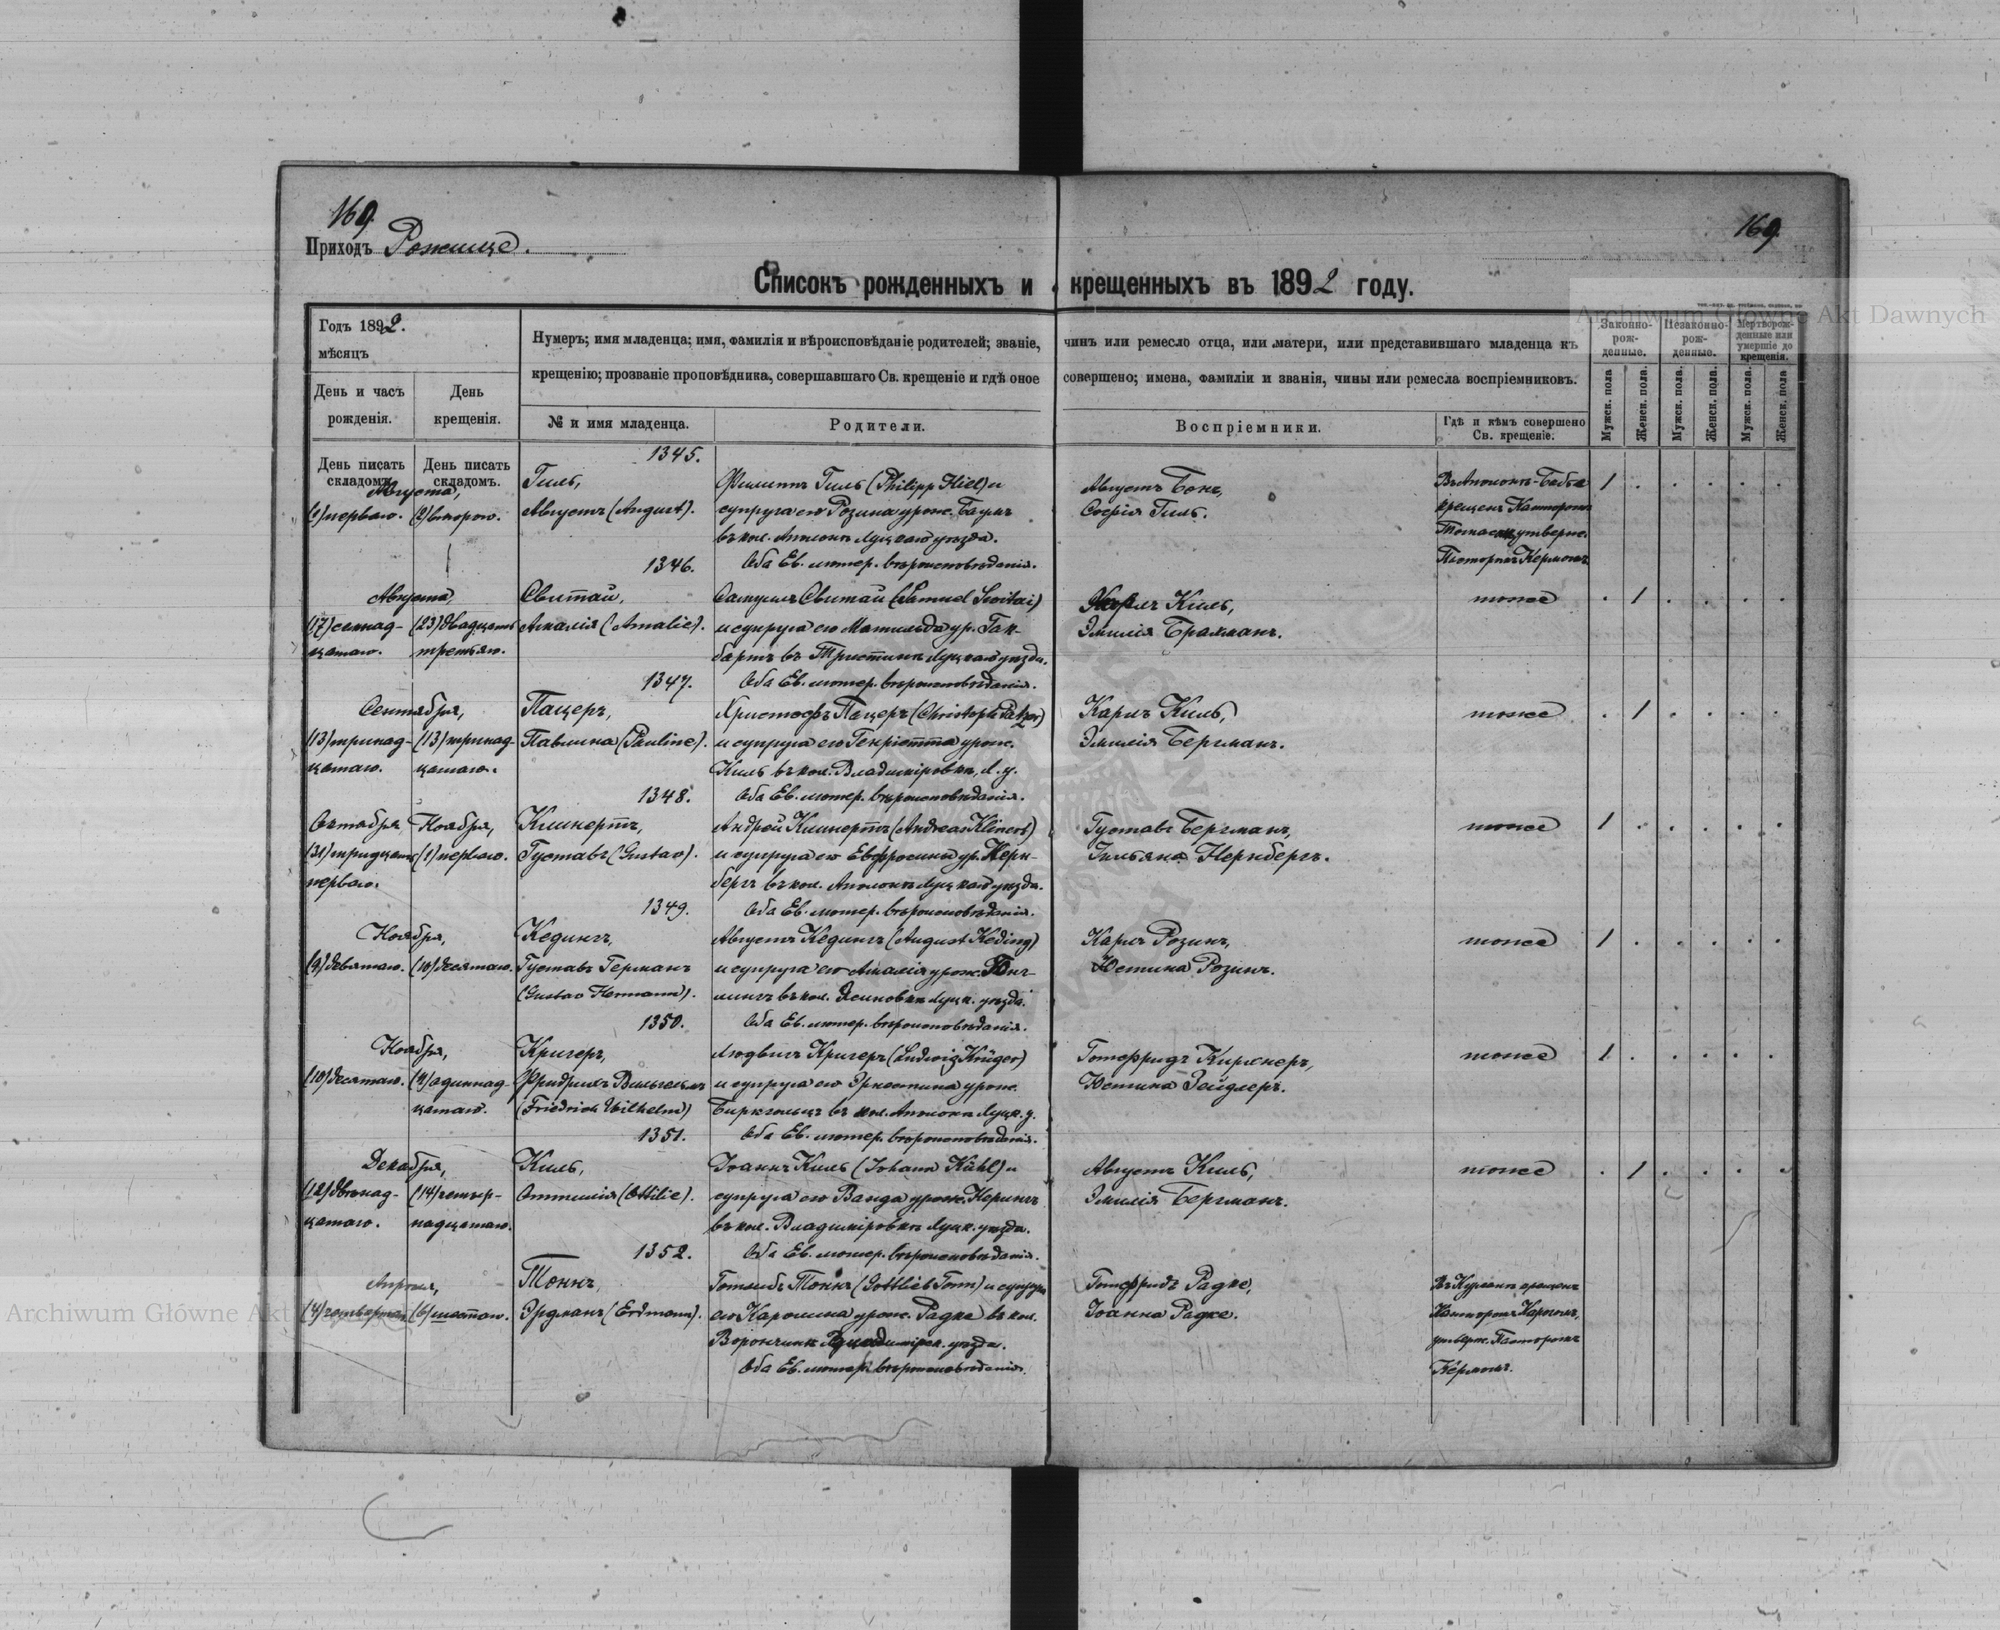 169.
Приходъ Рожище.
169.
Списокъ рожденныхъ и крещенныхъ въ 1892 году.
Archiwum Główne Akt Dawnych
Годъ 1892.
мѣсяцъ
День и часъ рожденія.
День крещенія.
Нумеръ; имя младенца; имя, фамилія и вѣроисповѣданіе родителей; званіе, чинъ или ремесло отца, или матери, или представившаго младенца къ
крещенію; прозваніе проповѣдника, совершавшаго Св. крещеніе и гдѣ оное совершено; имена, фамиліи и званія, чины или ремесла воспріемниковъ.
№ и имя младенца.
Родители.
Воспріемники.
Гдѣ и кѣмъ совершено Св. крещеніе.
Законно-рож-денные.
Незаконно-рож-денные.
Мертворож-денные или умершіе до крещенія.
Мужск. пола
Женск. пола.
Мужск. пола.
Женск. пола.
Мужск. пола.
Женск. пола
День писать складомъ.
День писать складомъ.
1345.
Августа,
(1) перваго. (2) второго.
Гиль,
Августъ (August).
Филиппъ Гиль (Philipp Hiel) и
супруга его Розина урож. Баумъ
въ кол. Аполонк Луцкаго уѣзда.
Оба Ев. лютер. вѣроисповѣданія.
Августъ Бонъ,
Софія Гиль.
крещенъ Канторомъ
утвержд.
Пасторомъ Кермомъ
1 . . . . .
1346.
Августа,
(17) семнад- (23) двадцать
цатаго. третьяго.
Свитай,
Амалія (Amalie).
Самуилъ Свитай (Samuel Switai)
и супруга его Матильда ур. Гак-
бартъ въ Тристинк Луцкаго уѣзда.
Оба Ев. лютер. вѣроисповѣданія.
Киль,
Эмилія Брахманъ.
тоже
. 1 . . . .
1347.
Сентября,
(13) тринад- (13) тринад-
цатаго. цатаго.
Пацеръ,
Павлина (Pauline).
Христофъ Пацеръ (Christoph Patzer)
и супруга его Генріетта урож.
Киль въ кол. Владиміровкѣ, Л. у.
Оба Ев. лютер. вѣроисповѣданія.
Карлъ Киль,
Эмилія Бергманъ.
тоже
. 1 . . . .
1348.
Октября, Ноября,
(31) тридцать (1) перваго.
перваго.
Клинертъ,
Густавъ (Gustav).
Андрей Клинертъ (Andreas Klinert)
и супруга его Евфросина ур. Нерн-
бергъ въ кол. Аполонк Луцкаго уѣзда.
Оба Ев. лютер. вѣроисповѣданія.
Густавъ Бергманъ,
Юльяна Нернбергъ.
тоже
1 . . . . .
1349.
Ноября,
(9) девятаго. (10) десятаго.
Кедингъ,
Густавъ Германъ
(Gustav Hermann).
Августъ Кедингъ (August Keding)
и супруга его Амалія урож.
лингъ въ кол. Ясиновкѣ Луцк. уѣзда.
Оба Ев. лютер. вѣроисповѣданія.
Карлъ Розинъ,
Юстина Розинъ.
тоже
1 . . . . .
1350.
Ноября,
(10) десятаго. (11) одиннад-
цатаго.
Кригеръ,
Фридрихъ Вильгельмъ
(Friedrich Wilhelm)
Людвигъ Кригеръ (Ludwig Krüger)
и супруга его Эрнестина урож.
Биркгольцъ въ кол. Аполонк Луцк. у.
Оба Ев. лютер. вѣроисповѣданія.
Готфридъ Киршнеръ,
Юстина Зейдлеръ.
тоже
1 . . . . .
1351.
Декабря,
(12) двѣнад- (14) четыр-
цатаго. надцатаго.
Киль,
Оттилія (Ottilie).
Іоаннъ Киль (Johann Kühl) и
супруга его Ванда урож. Керингъ
въ кол. Владиміровкѣ Луцк. уѣзда.
Оба Ев. лютер. вѣроисповѣданія.
Августъ Киль,
Эмилія Бергманъ.
тоже
. 1 . . . .
1352.
Апрѣля,
(4) четвертаго (6) шестаго.
Тоннъ,
Эрдманъ (Erdmann).
Готлибъ Тоннъ (Gottlieb Tonn) и супруга
его Каролина урож. Радке въ кол.
уѣзда.
Оба Ев. лютер. вѣроисповѣданія.
Готфридъ Радке,
Іоанна Радке.
крещенъ
Канторомъ
утверж. Пасторомъ
Кермомъ.
Archiwum Główne Akt